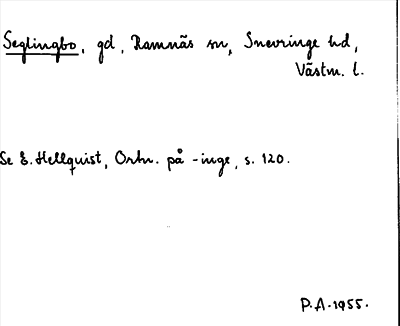 Seglingbo, gd, Ramnäs sn, Snevringe hd,
Västm. l.
Se E. Hellquist, Ortn. på -inge, s. 120.
P.A. 1955.